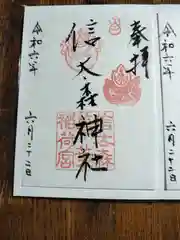 奉拝
信太森神社
令和六年
六月二十二日
令和六年
六月二十二日